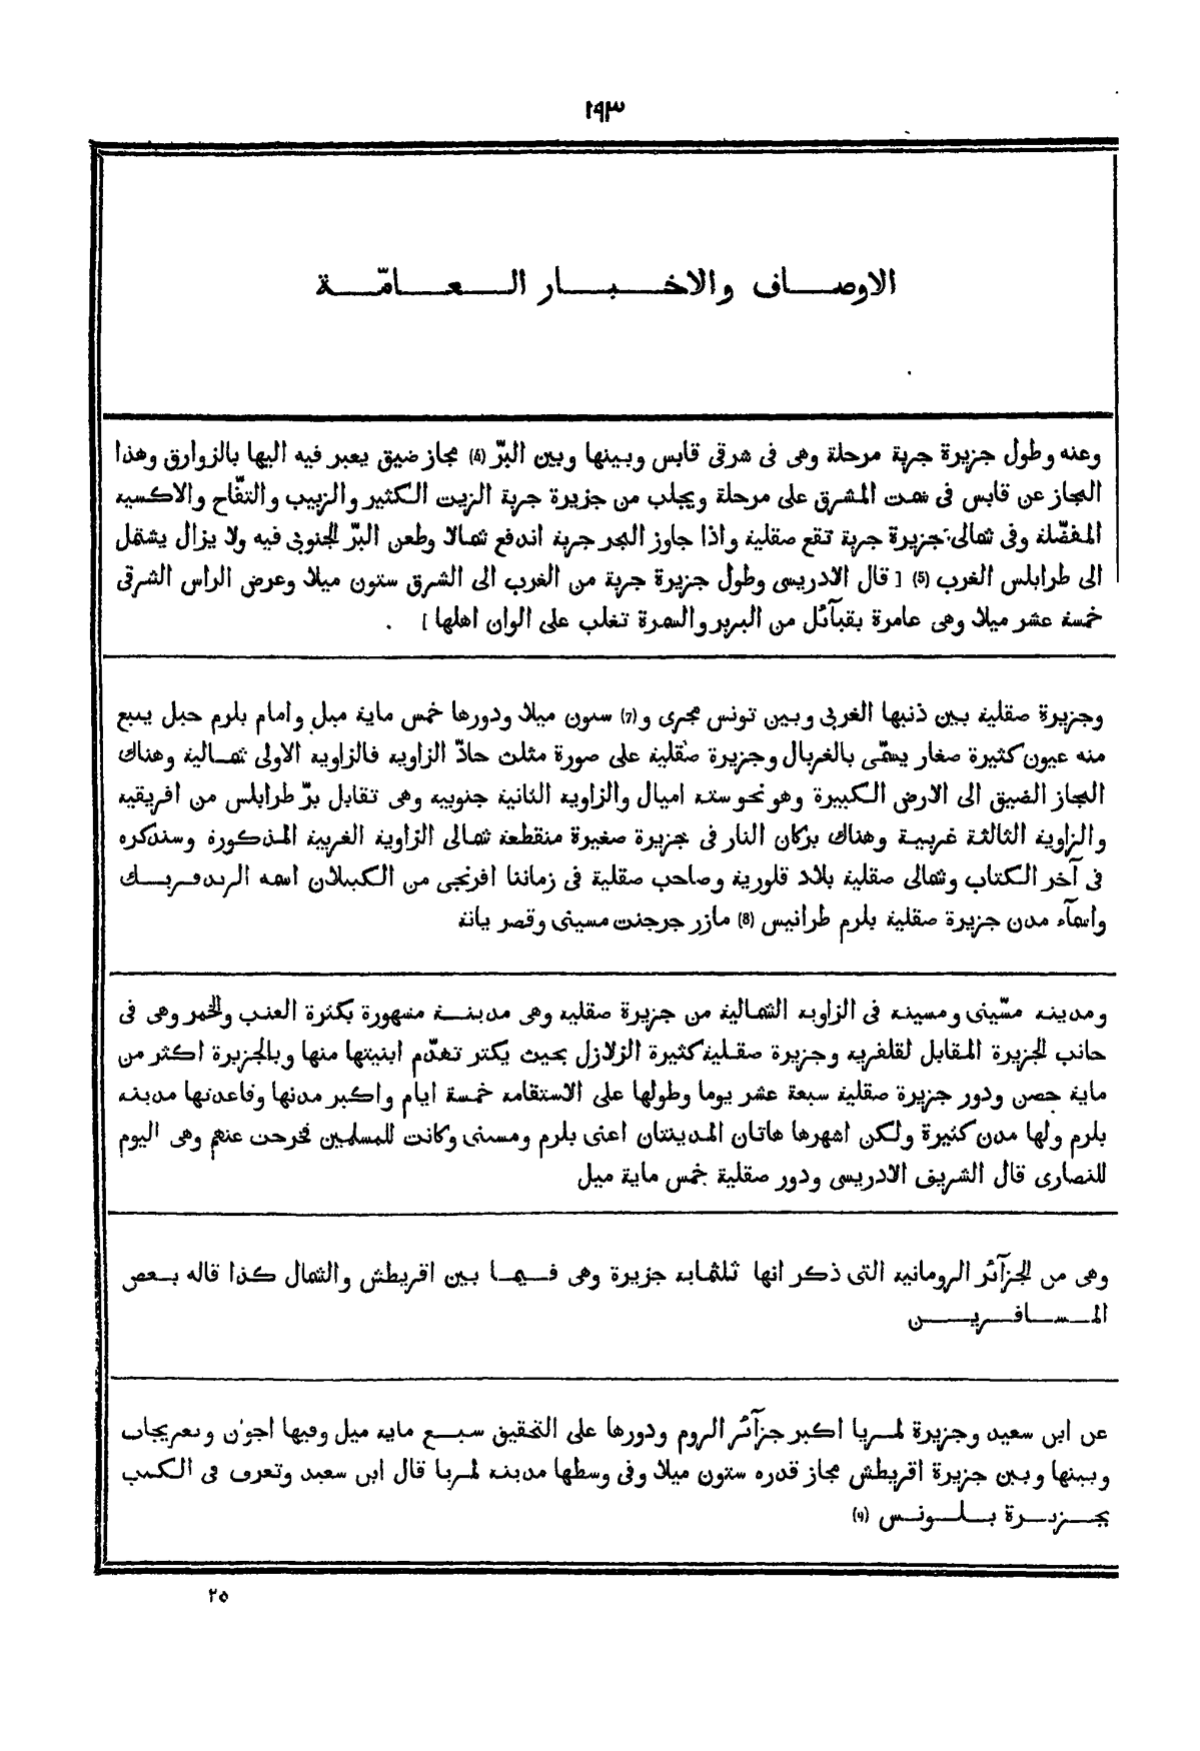 ١٩٣
الاوصاف والاخبار العامّة
وعنه وطول جزيرة جربة مرحلة وهى فى شرقى قابس وبينها وبين البرّ (4) مجاز ضيق يعبر فيه اليها بالزوارق وهذا
المجاز عن قابس فى سمت المشرق على مرحلة ويجلب من جزيرة جربة الزيت الكثير والزبيب والتفّاح والاكسية
المفضّلة وفى شمالى جزيرة جربة تقع صقلية واذا جاوز البحر جربة اندفع شمالا وطعن البرّ الجنوبى فيه ولا يزال يشتمل
الى طرابلس الغرب (5) [ قال الادريسى وطول جزيرة جربة من الغرب الى الشرق ستون ميلا وعرض الراس الشرقى
خمسة عشر ميلا وهى عامرة بقبآئل من البربر والسمرة تغلب على الوان اهلها ] .
وجزيرة صقلية بين ذنبها الغربى وبين تونس مجرى و(7) ستون ميلا ودورها خمس ماية ميل وامام بلرم جبل ينبع
منه عيون كثيرة صغار يسمّى بالغربال وجزيرة صقلية على صورة مثلث حادّ الزاوية فالزاوية الاولى شمالية وهناك
المجاز الضيق الى الارض الكبيرة وهو نحو ستة اميال والزاوية الثانية جنوبية وهى تقابل برّ طرابلس من افريقية
والزاوية الثالثة غربية وهناك بركان النار فى جزيرة صغيرة منقطعة شمالى الزاوية الغربية المذكورة وسنذكره
فى آخر الكتاب وشمالى صقلية بلاد قلورية وصاحب صقلية فى زماننا افرنجى من الكيبلان اسمه الريدفريك
واسمآء مدن جزيرة صقلية بلرم طرانيس (8) مازر جرجنت مسينى وقصر يانة
ومدينة مسّينى ومسينة فى الزاوية الشمالية من جزيرة صقلية وهى مدينة مشهورة بكثرة العنب والخمر وهى فى
جانب الجزيرة المقابل لقلفرية وجزيرة صقلية كثيرة الزلازل بحيث يكثر تهدّم ابنيتها منها وبالجزيرة اكثر من
ماية حصن ودور جزيرة صقلية سبعة عشر يوما وطولها على الاستقامة خمسة ايام واكبر مدنها وقاعدتها مدينة
بلرم ولها مدن كثيرة ولكن اشهرها هاتان المدينتان اعنى بلرم ومسينى وكانت للمسلمين فخرجت عنهم وهى اليوم
للنصارى قال الشريف الادريسى ودور صقلية خمس ماية ميل
وهى من الجزآئر الرومانية التى ذكر انها ثلثماية جزيرة وهى فيما بين اقريطش والشمال كذا قاله بعض
المسافرين
عن ابن سعيد وجزيرة لمريا اكبر جزآئر الروم ودورها على التحقيق سبع ماية ميل وفيها اجوُن وتعريجات
وبينها وبين جزيرة اقريطش مجاز قدره ستون ميلا وفى وسطها مدينة لمريا قال ابن سعيد وتعرف فى الكتب
بجزيرة بلونس (9)
٢٥